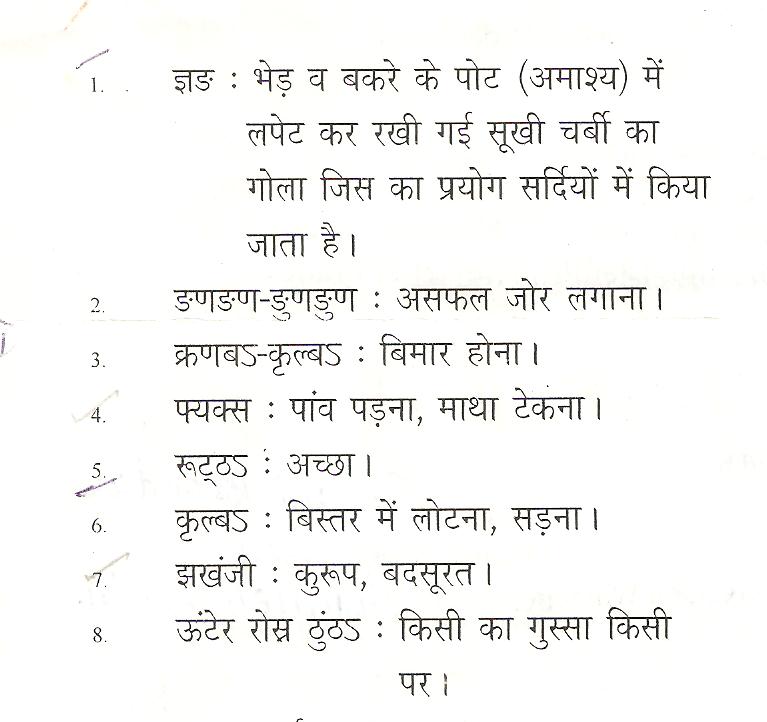 1. ज्ञङ : भेड़ व बकरे के पोट (अमाश्य) में
लपेट कर रखी गई सूखी चर्बी का
गोला जिस का प्रयोग सर्दियों में किया
जाता है।
2. ङणङण-ङुणङुण : असफल जोर लगाना।
3. क्रणबऽ-कृल्बऽ : बिमार होना।
4. फ्यक्स : पांव पड़ना, माथा टेकना।
5. रूट्ठऽ : अच्छा।
6. कृल्बऽ : बिस्तर में लोटना, सड़ना।
7. झखंजी : कुरूप, बदसूरत।
8. ऊंटेर रोस्र ठुंठऽ : किसी का गुस्सा किसी
पर।